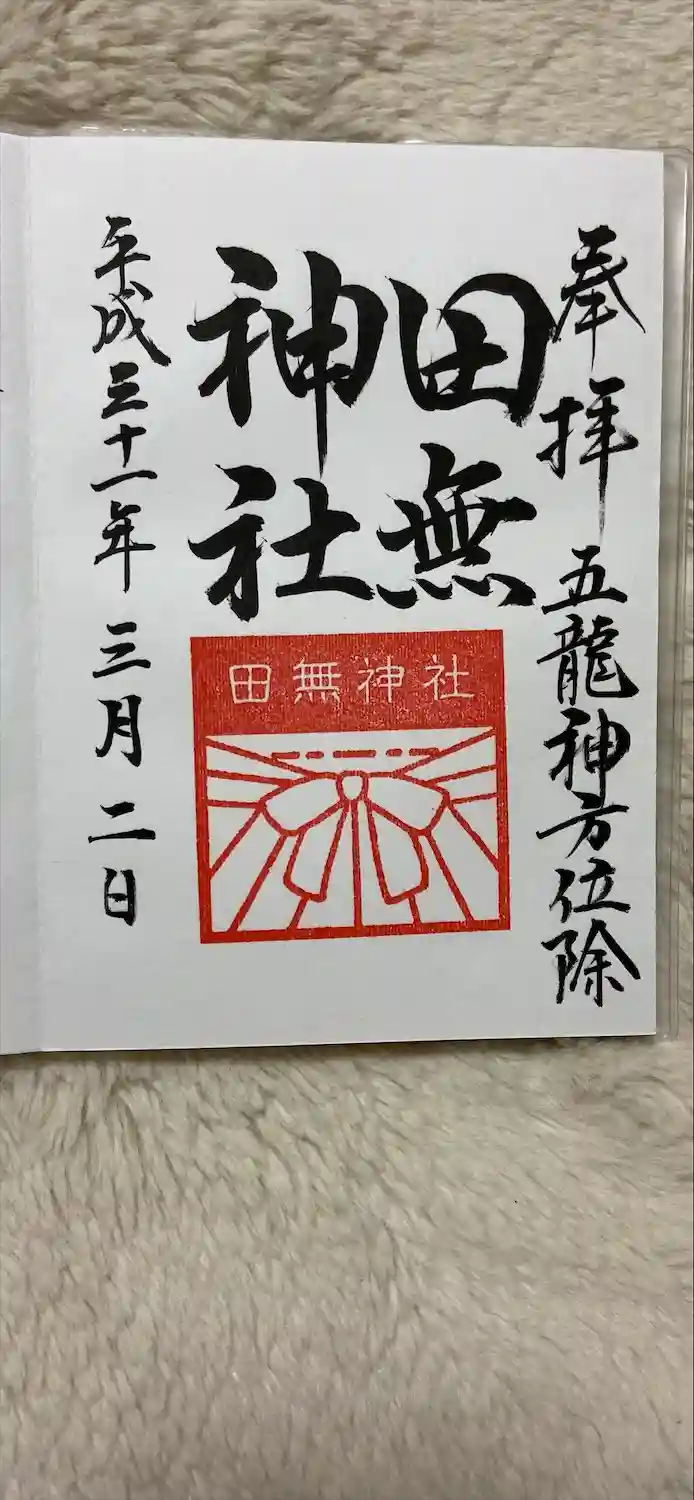 奉拝 五龍神方位除
田無
神社
田無神社
平成三十一年 三月 二日